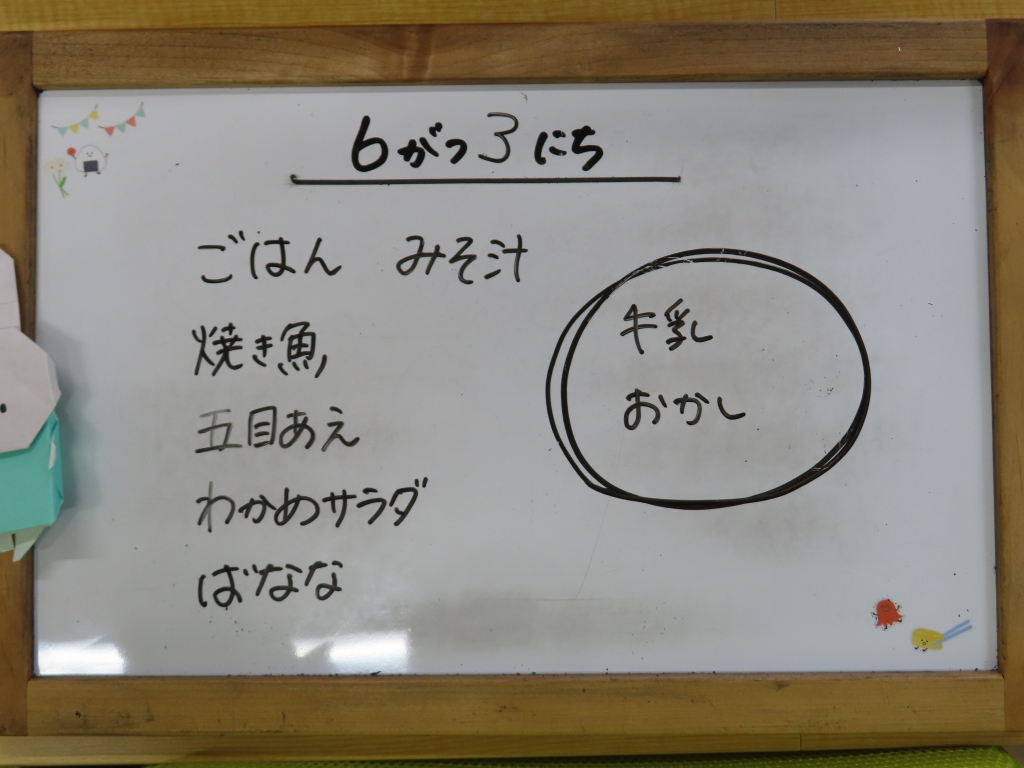 6がつ3にち
ごはん みそ汁
焼き魚
五目あえ
わかめサラダ
ばなな
牛乳
おかし